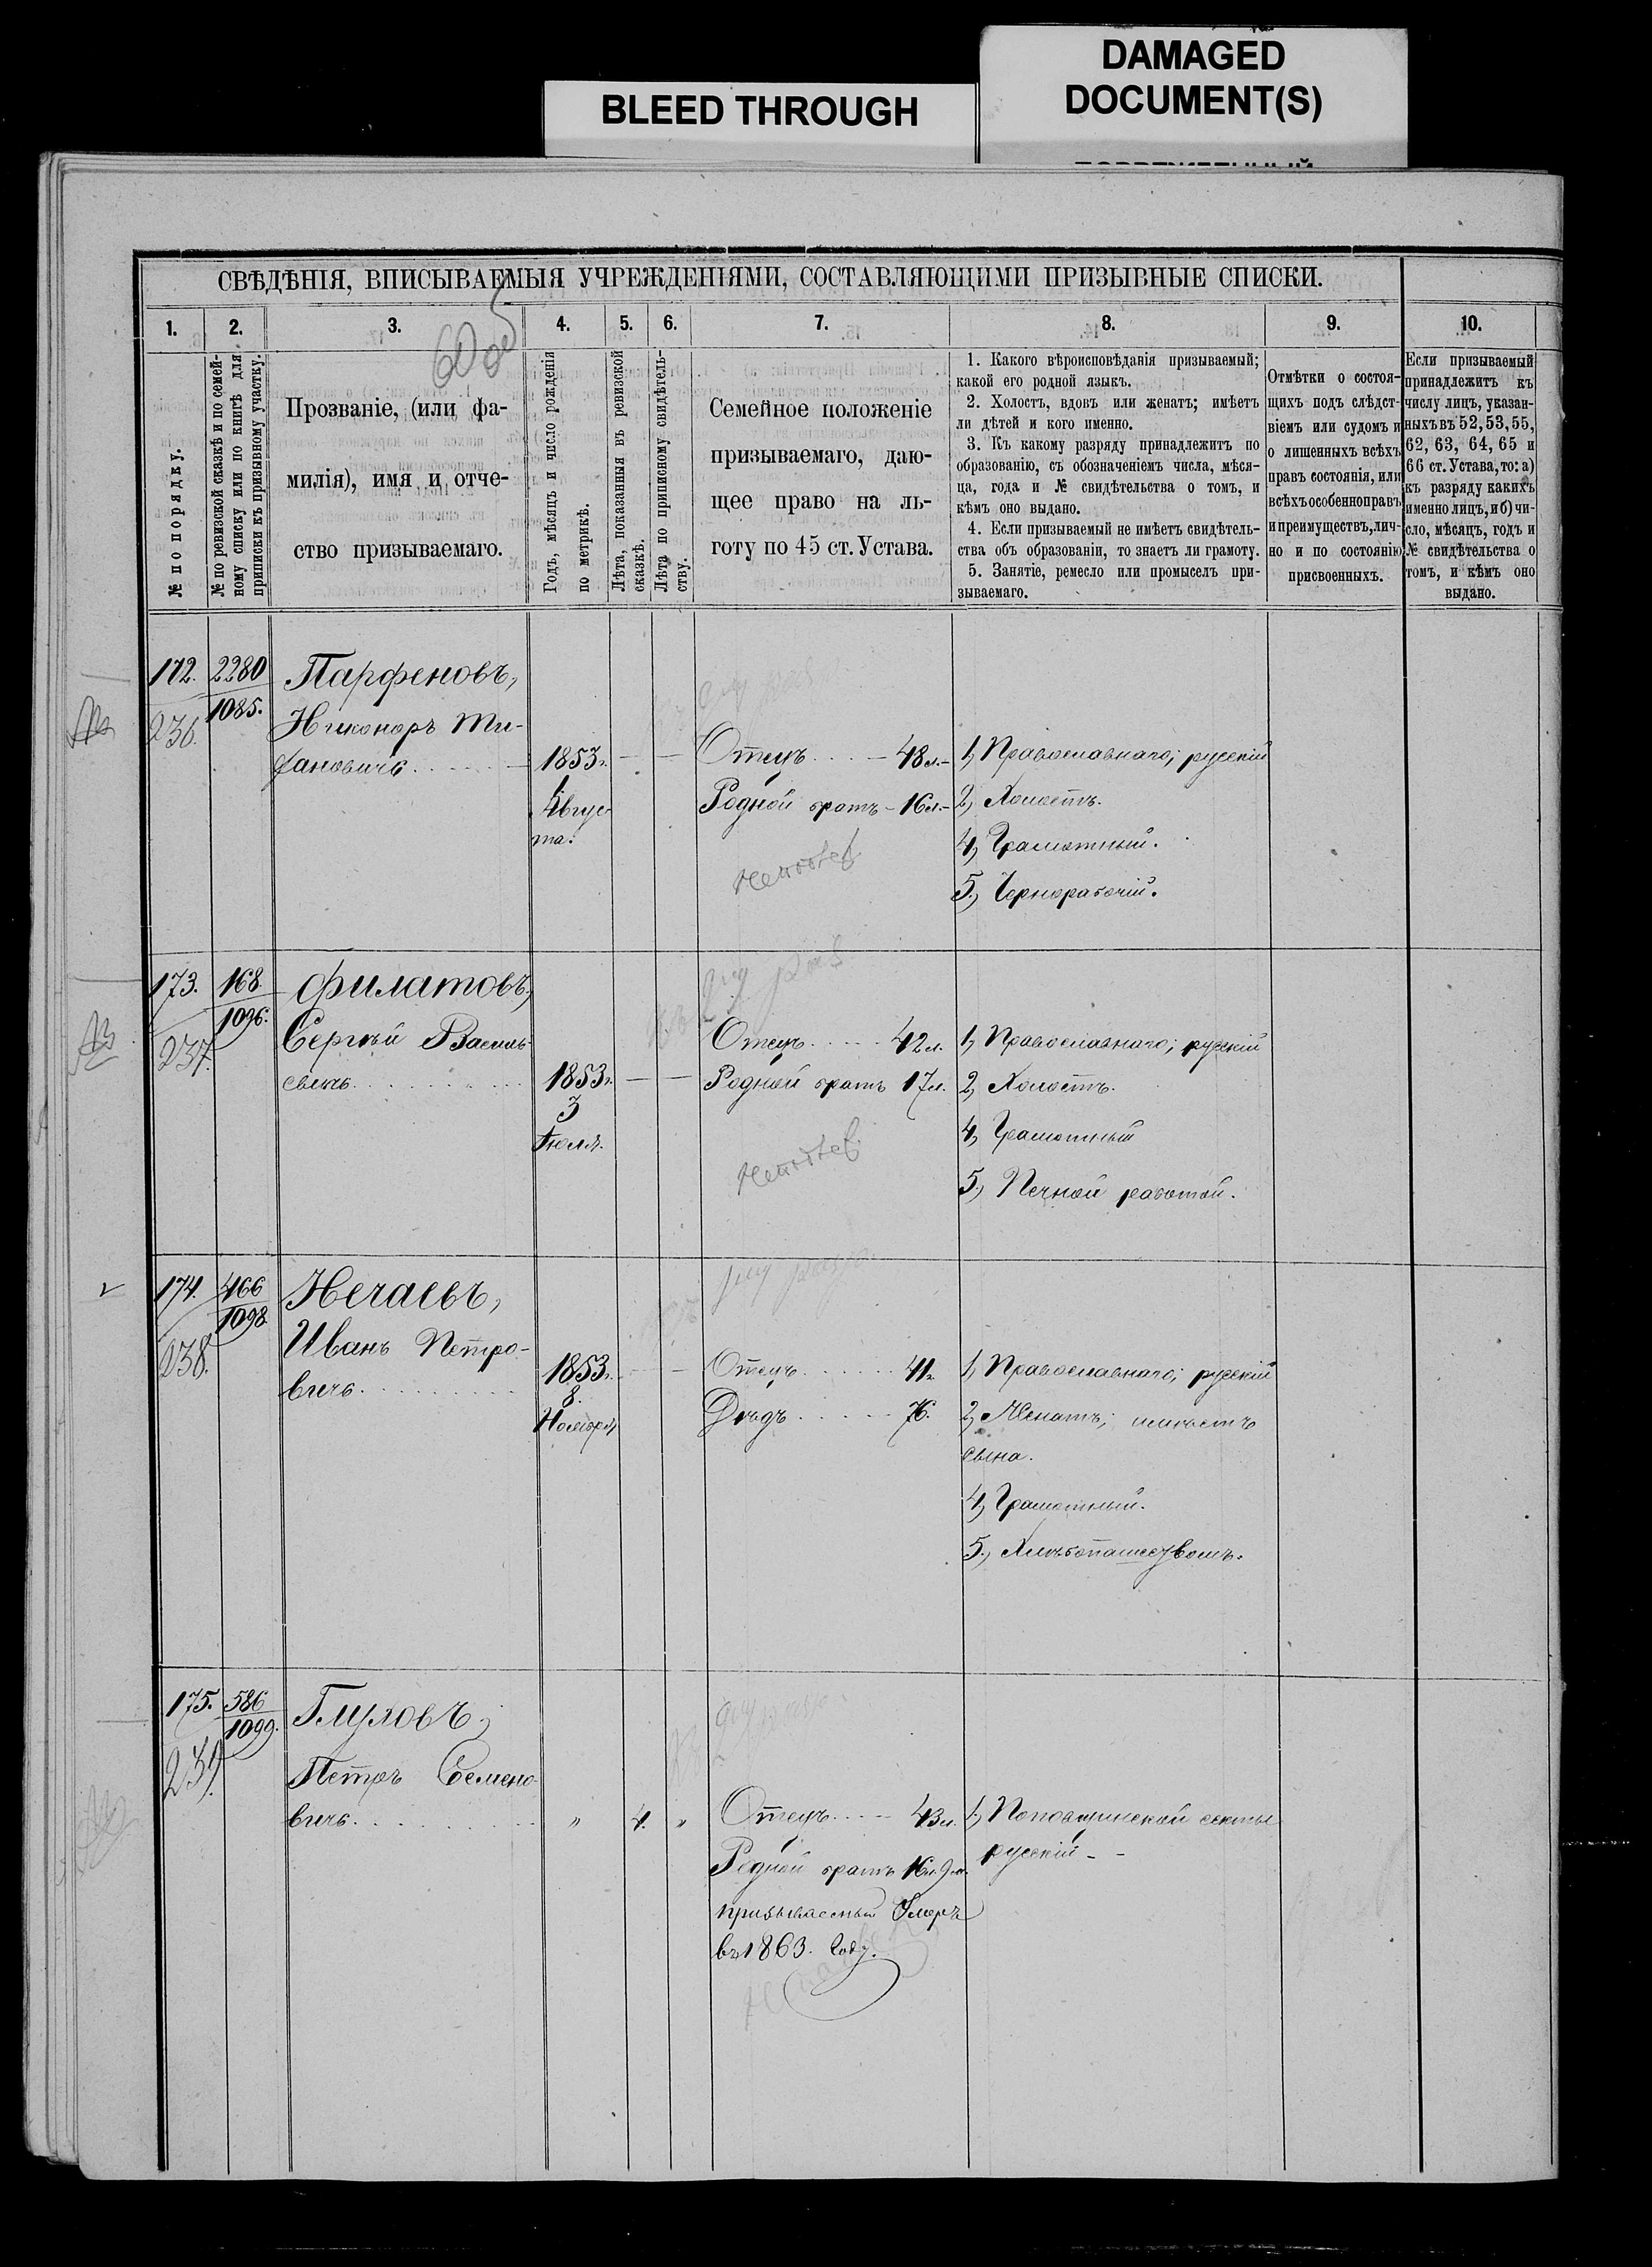 DAMAGED
DOCUMENT(S)
BLEED THROUGH
СВѢДѢНІЯ, ВПИСЫВАЕМЫЯ УЧРЕЖДЕНІЯМИ, СОСТАВЛЯЮЩИМИ ПРИЗЫВНЫЕ СПИСКИ.
1. 2. 3. 4. 5. 6. 7. 8. 9. 10.
№ по порядку.
№ по ревизской сказкѣ и по семей-
ному списку или по книгѣ для
приписки къ призывному участку.
Прозваніе, (или фа-
милія), имя и отче-
ство призываемаго.
Годъ, мѣсяцъ и число рожденія
по метрикѣ.
Лѣта, показанныя въ ревизской
сказкѣ.
Лѣта по приписному свидѣтель-
ству.
Семейное положеніе
призываемаго, даю-
щее право на ль-
готу по 45 ст. Устава.
1. Какого вѣроисповѣданія призываемый;
какой его родной языкъ.
2. Холостъ, вдовъ или женатъ; имѣетъ
ли дѣтей и кого именно.
3. Къ какому разряду принадлежитъ по
образованію, съ обозначеніемъ числа, мѣся-
ца, года и № свидѣтельства о томъ, и
кѣмъ оно выдано.
4. Если призываемый не имѣетъ свидѣтель-
ства объ образованіи, то знаетъ ли грамоту.
5. Занятіе, ремесло или промыселъ при-
зываемаго.
Отмѣтки о состоя-
щихъ подъ слѣдст-
віемъ или судомъ и
о лишенныхъ всѣхъ
правъ состоянія, или
всѣхъ особенно правъ
и преимуществъ, лич-
но и по состоянію
присвоенныхъ.
Если призываемый
принадлежитъ къ
числу лицъ, указан-
ныхъ въ 52, 53, 55,
62, 63, 64, 65 и
66 ст. Устава, то: а)
къ разряду какихъ
именно лицъ, и б) чи-
сло, мѣсяцъ, годъ и
№ свидѣтельства о
томъ, и кѣмъ оно
выдано.
60 об
172. 2280
1085.
236.
Парфеновъ,
Никоноръ Ти-
фановичъ
1853 г.
Авгус-
та.
Отецъ 48 л.
Родной братъ 16 л.
1, Православнаго; русскій
2, Холостъ.
4, Грамотный.
5, Чернорабочій.
173. 168
1096.
237.
Филатовъ,
Сергѣй Василь-
евичъ
1853 г.
3
Іюля.
Отецъ 42 л.
Родной братъ 17 л.
1, Православнаго; русскій
2, Холостъ.
4, Грамотный
5, Печной работой.
174. 466
1098
238.
Нечаевъ,
Иванъ Петро-
вичъ
1853 г.
8.
Ноября
Отецъ 41 л.
Дѣдъ 76.
1, Православнаго; русскій
2, Женатъ; имѣетъ
сына.
4, Грамотный.
5, Хлѣбопашествомъ.
175. 586
1099.
239.
Глуховъ,
Петръ Семено-
вичъ
" 4. "
Отецъ 43 л.
Родной братъ 16 л. 9 м.
призываемый Умеръ
въ 1863. Году.
1, Поповщинской секты
русскій